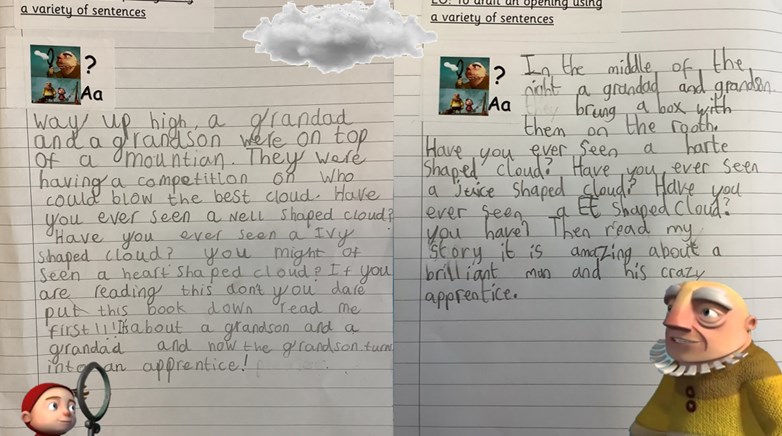 a variety of sentences
?
Aa
Way up high, a grandad
and a grandson were on top
of a mountian. They were
having a competition on who
could blow the best cloud. Have
you ever seen a Nell shaped cloud?
Have you ever seen a Ivy
shaped cloud? you might of
seen a heart shaped cloud? If you
are reading this dont you dare
put this book down read me
first!!! about a grandson and a
grandad and how the grandson turns
into an apprentice!
LO: To draft an opening using
a variety of sentences
?
Aa
In the middle of the
night a grandad and grandson
brung a box with
them on the rooth.
Have you ever seen a harte
shaped cloud? Have you ever seen
a juice shaped cloud? Have you
ever seen a EE shaped cloud?
you have? Then read my
story it is amazing about a
brilliant man and his crazy
apprentice.